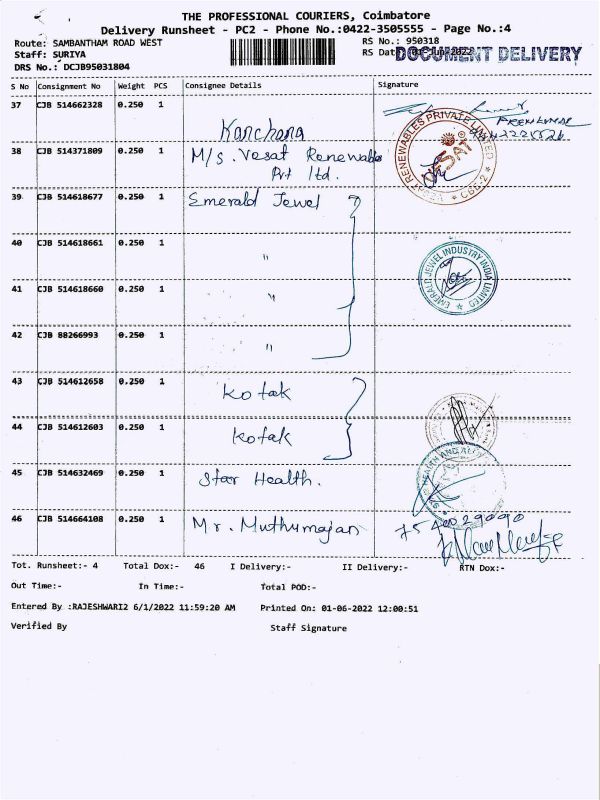 THE PROFESSIONAL COURIERS, Coimbatore
Delivery Runsheet - PC2 - Phone No.:0422-3505555 - Page No.:4
Route: SAMBANTHAM ROAD WEST RS No.: 950318
Staff: SURIYA RS Date: 01-Jun-2022 DOCUMENT DELIVERY
DRS No.: DCJB95031804
S No Consignment No Weight PCS Consignee Details Signature
37 CJB 514662328 0.250 1 Kanchana
38 CJB 514371809 0.250 1 M/s. Vesat Renewables
Pvt ltd.
VESAT RENEWABLES PRIVATE LIMITED
VESAT
CBE-2
39 CJB 514618677 0.250 1 Emerald Jewel
40 CJB 514618661 0.250 1 "
EMERALD JEWEL INDUSTRY INDIA LIMITED
41 CJB 514618660 0.250 1 "
42 CJB 88266993 0.250 1 "
43 CJB 514612658 0.250 1 kotak
44 CJB 514612603 0.250 1 kotak
45 CJB 514632469 0.250 1 Star Health.
HEALTH AND
46 CJB 514664108 0.250 1 Mr. Muthumajan
Tot. Runsheet:- 4 Total Dox:- 46 I Delivery:- II Delivery:- RTN Dox:-
Out Time:- In Time:- Total POD:-
Entered By :RAJESHWARI2 6/1/2022 11:59:20 AM Printed On: 01-06-2022 12:00:51
Verified By Staff Signature